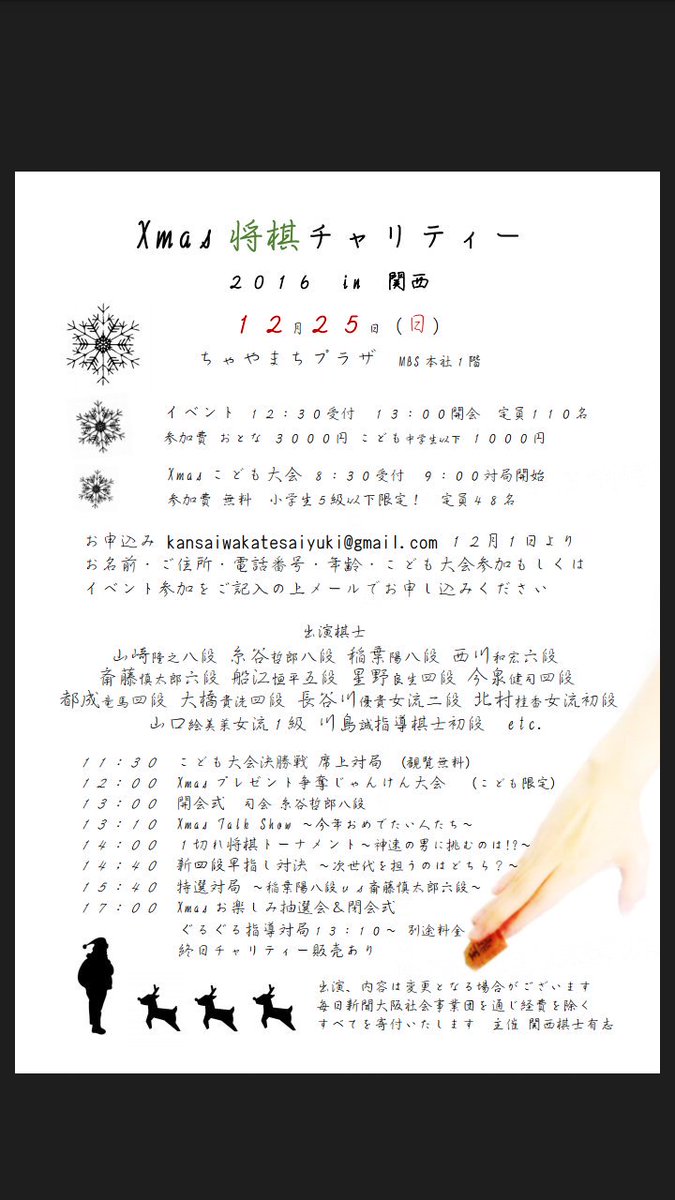 Xmas 将棋チャリティー
2016 in 関西
12月25日(日)
ちゃやまちプラザ MBS本社1階
イベント 12:30受付 13:00開会 定員110名
参加費 おとな 3000円 こども中学生以下 1000円
Xmasこども大会 8:30受付 9:00対局開始
参加費 無料 小学生5級以下限定! 定員48名
お申込み kansaiwakatesaiyuki@gmail.com 12月1日より
お名前・ご住所・電話番号・年齢・こども大会参加もしくは
イベント参加をご記入の上メールでお申し込みください
出演棋士
山崎隆之八段 糸谷哲郎八段 稲葉陽八段 西川和宏六段
斎藤慎太郎六段 船江恒平五段 星野良生四段 今泉健司四段
都成竜馬四段 大橋貴洸四段 長谷川優貴女流二段 北村桂香女流初段
山口絵美菜女流1級 川島誠指導棋士初段 etc.
11:30 こども大会決勝戦 席上対局 (観覧無料)
12:00 Xmasプレゼント争奪じゃんけん大会 (こども限定)
13:00 開会式 司会 糸谷哲郎八段
13:10 Xmas Talk Show ~今年おめでたい人たち~
14:00 1切れ将棋トーナメント~神速の男に挑むのは!?~
14:40 新四段早指し対決 ~次世代を担うのはどちら?~
15:40 特選対局 ~稲葉陽八段vs斎藤慎太郎六段~
17:00 Xmasお楽しみ抽選会&閉会式
ぐるぐる指導対局13:10~ 別途料金
終日チャリティー販売あり
出演、内容は変更となる場合がございます
毎日新聞大阪社会事業団を通じ経費を除く
すべてを寄付いたします 主催 関西棋士有志